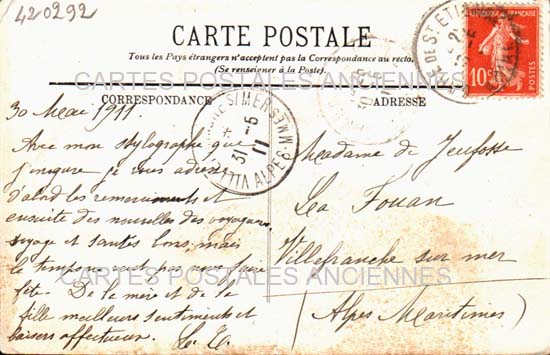 420292
CARTE POSTALE
Tous les Pays étrangers n'acceptent pas la Correspondance au recto.
(Se renseigner à la Poste)
CARTES POSTALES ANCIENNES
CORRESPONDANCE
ADRESSE
REPUBLIQUE FRANÇAISE
10c
POSTES
30 Mai 1911.
Avec mon stylographe que
j'inaugure je vous adresse
d'abord les remerciements et
ensuite des nouvelles des voyageurs
voyage et santés bons, mais
le temps
fête. De la mère et de la
fille meilleurs sentiments et
baisers affectueux.
Madame de Jeufosse
La Fouan
Villefranche sur mer
CARTES POSTALES ANCIENNES
Alpes Maritimes